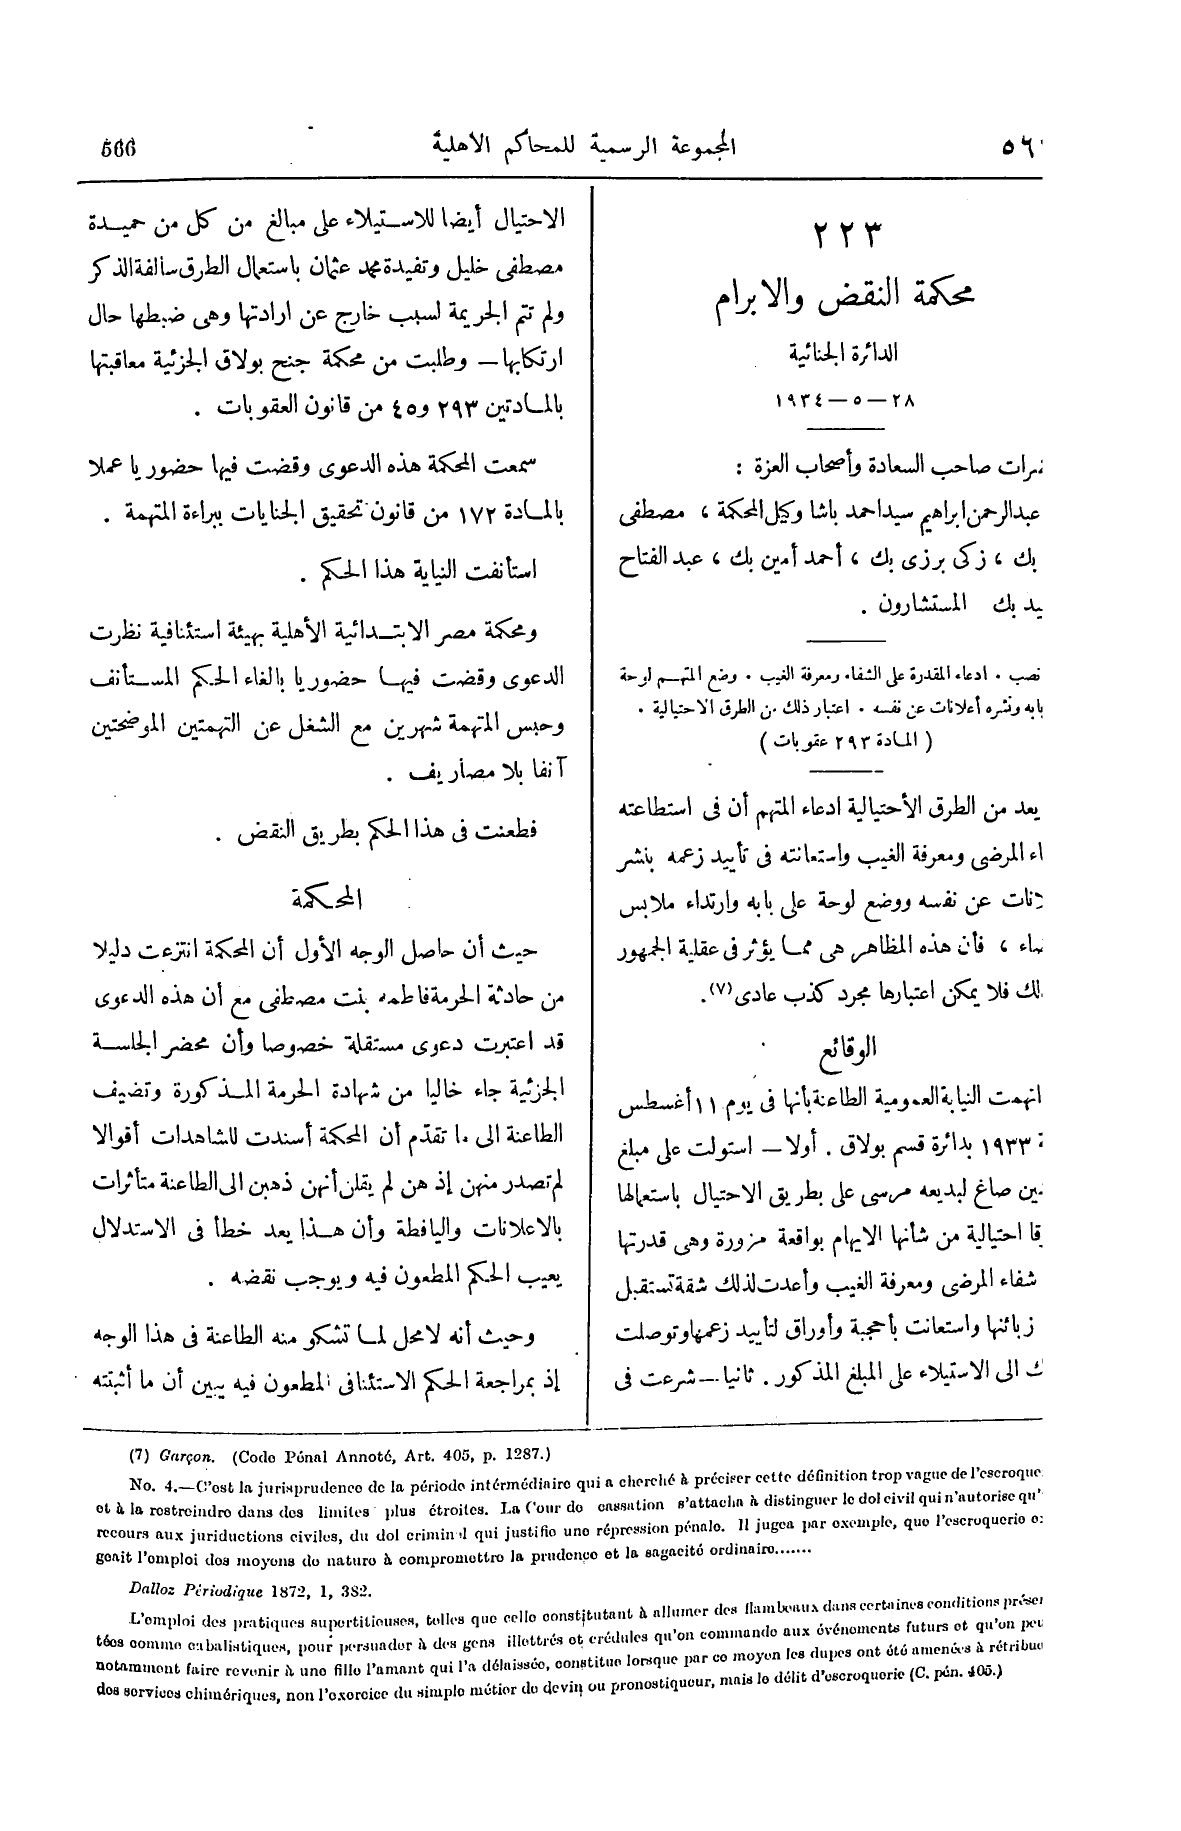 566 المجموعة الرسمية للمحاكم الأهلية ٥٦
٢٢٣
محكمة النقض والابرام
الدائرة الجنائية
٢٨ — ٥ — ١٩٣٤
صاحب السعادة وأصحاب العزة :
عبدالرحمن ابراهيم سيد احمد باشا وكيل المحكمة ، مصطفى
بك ، زكى برزى بك ، أحمد أمين بك ، عبد الفتاح
بك المستشارون .
نصب . ادعاء المقدرة على الشفاء ومعرفة الغيب . وضع المتهم لوحة
بابه ونشره أعلانات عن نفسه . اعتبار ذلك من الطرق الاحتيالية .
( المادة ٢٩٣ عقوبات )
يعد من الطرق الأحتيالية ادعاء المتهم أن فى استطاعته
المرضى ومعرفة الغيب واستعانته فى تأييد زعمه بنشر
عن نفسه ووضع لوحة على بابه وارتداء ملابس
، فأن هذه المظاهر هى مما يؤثر فى عقلية الجمهور
فلا يمكن اعتبارها مجرد كذب عادى(٧).
الوقائع
اتهمت النيابة العمومية الطاعنة بأنها فى يوم ١١ أغسطس
١٩٣٣ بدائرة قسم بولاق . أولا — استولت على مبلغ
صاغ لبديعه مرسى على بطريق الاحتيال باستعمالها
احتيالية من شأنها الايهام بواقعة مزورة وهى قدرتها
شفاء المرضى ومعرفة الغيب وأعدت لذلك شقة تستقبل
زبائنها واستعانت بأحجبة وأوراق لتأييد زعمها وتوصلت
الى الاستيلاء على المبلغ المذكور . ثانيا — شرعت فى
الاحتيال أيضا للاستيلاء على مبالغ من كل من حميدة
مصطفى خليل وتفيدة محمد عثمان باستعمال الطرق سالفة الذكر
ولم تتم الجريمة لسبب خارج عن ارادتها وهى ضبطها حال
ارتكابها — وطلبت من محكمة جنح بولاق الجزئية معاقبتها
بالمادتين ٢٩٣ و٤٥ من قانون العقوبات .
سمعت المحكمة هذه الدعوى وقضت فيها حضوريا عملا
بالمادة ١٧٢ من قانون تحقيق الجنايات ببراءة المتهمة .
استأنفت النيابة هذا الحكم .
ومحكمة مصر الابتدائية الأهلية بهيئة استئنافية نظرت
الدعوى وقضت فيها حضوريا بالغاء الحكم المستأنف
وحبس المتهمة شهرين مع الشغل عن التهمتين الموضحتين
آنفا بلا مصاريف .
فطعنت فى هذا الحكم بطريق النقض .
المحكمة
حيث أن حاصل الوجه الأول أن المحكمة انتزعت دليلا
من حادثة الحرمة فاطمه بنت مصطفى مع أن هذه الدعوى
قد اعتبرت دعوى مستقلة خصوصا وأن محضر الجلسة
الجزئية جاء خاليا من شهادة الحرمة المذكورة وتضيف
الطاعنة الى ما تقدّم أن المحكمة أسندت للشاهدات أقوالا
لم تصدر منهن إذ هن لم يقلن أنهن ذهبن الى الطاعنة متأثرات
بالاعلانات واليافطة وأن هذا يعد خطأ فى الاستدلال
يعيب الحكم المطعون فيه ويوجب نقضه .
وحيث أنه لا محل لما تشكو منه الطاعنة فى هذا الوجه
إذ بمراجعة الحكم الاستئنافى المطعون فيه يبين أن ما أثبتته
(7) Garçon. (Code Pénal Annoté, Art. 405, p. 1287.)
No. 4.—C'est la jurisprudence de la période intérmédiaire qui a cherché à préciser cette définition trop vague de l'escroque
et à la restreindre dans des limites plus étroites. La Cour de cassation s'attacha à distinguer le dol civil qui n'autorise qu'
recours aux juriductions civiles, du dol criminel qui justifie une répression pénale. Il jugea par exemple, que l'escroquerie
geait l'emploi des moyens de nature à compromettre la prudence et la sagacité ordinaire.......
Dalloz Périodique 1872, 1, 382.
L'emploi des pratiques supertitieuses, telles que celle constitutant à allumer des flambeaux dans certaines conditions présen
tées comme cabalistiques, pour persuader à des gens illettrés et crédules qu'on commande aux événements futurs et qu'on peu
notamment faire revenir à une fille l'amant qui l'a délaissée, constitue lorsque par ce moyen les dupes ont été amenées à rétribue
des services chimériques, non l'exercice du simple métier de devin ou pronostiqueur, mais le délit d'escroquerie (C. pén. 405.)